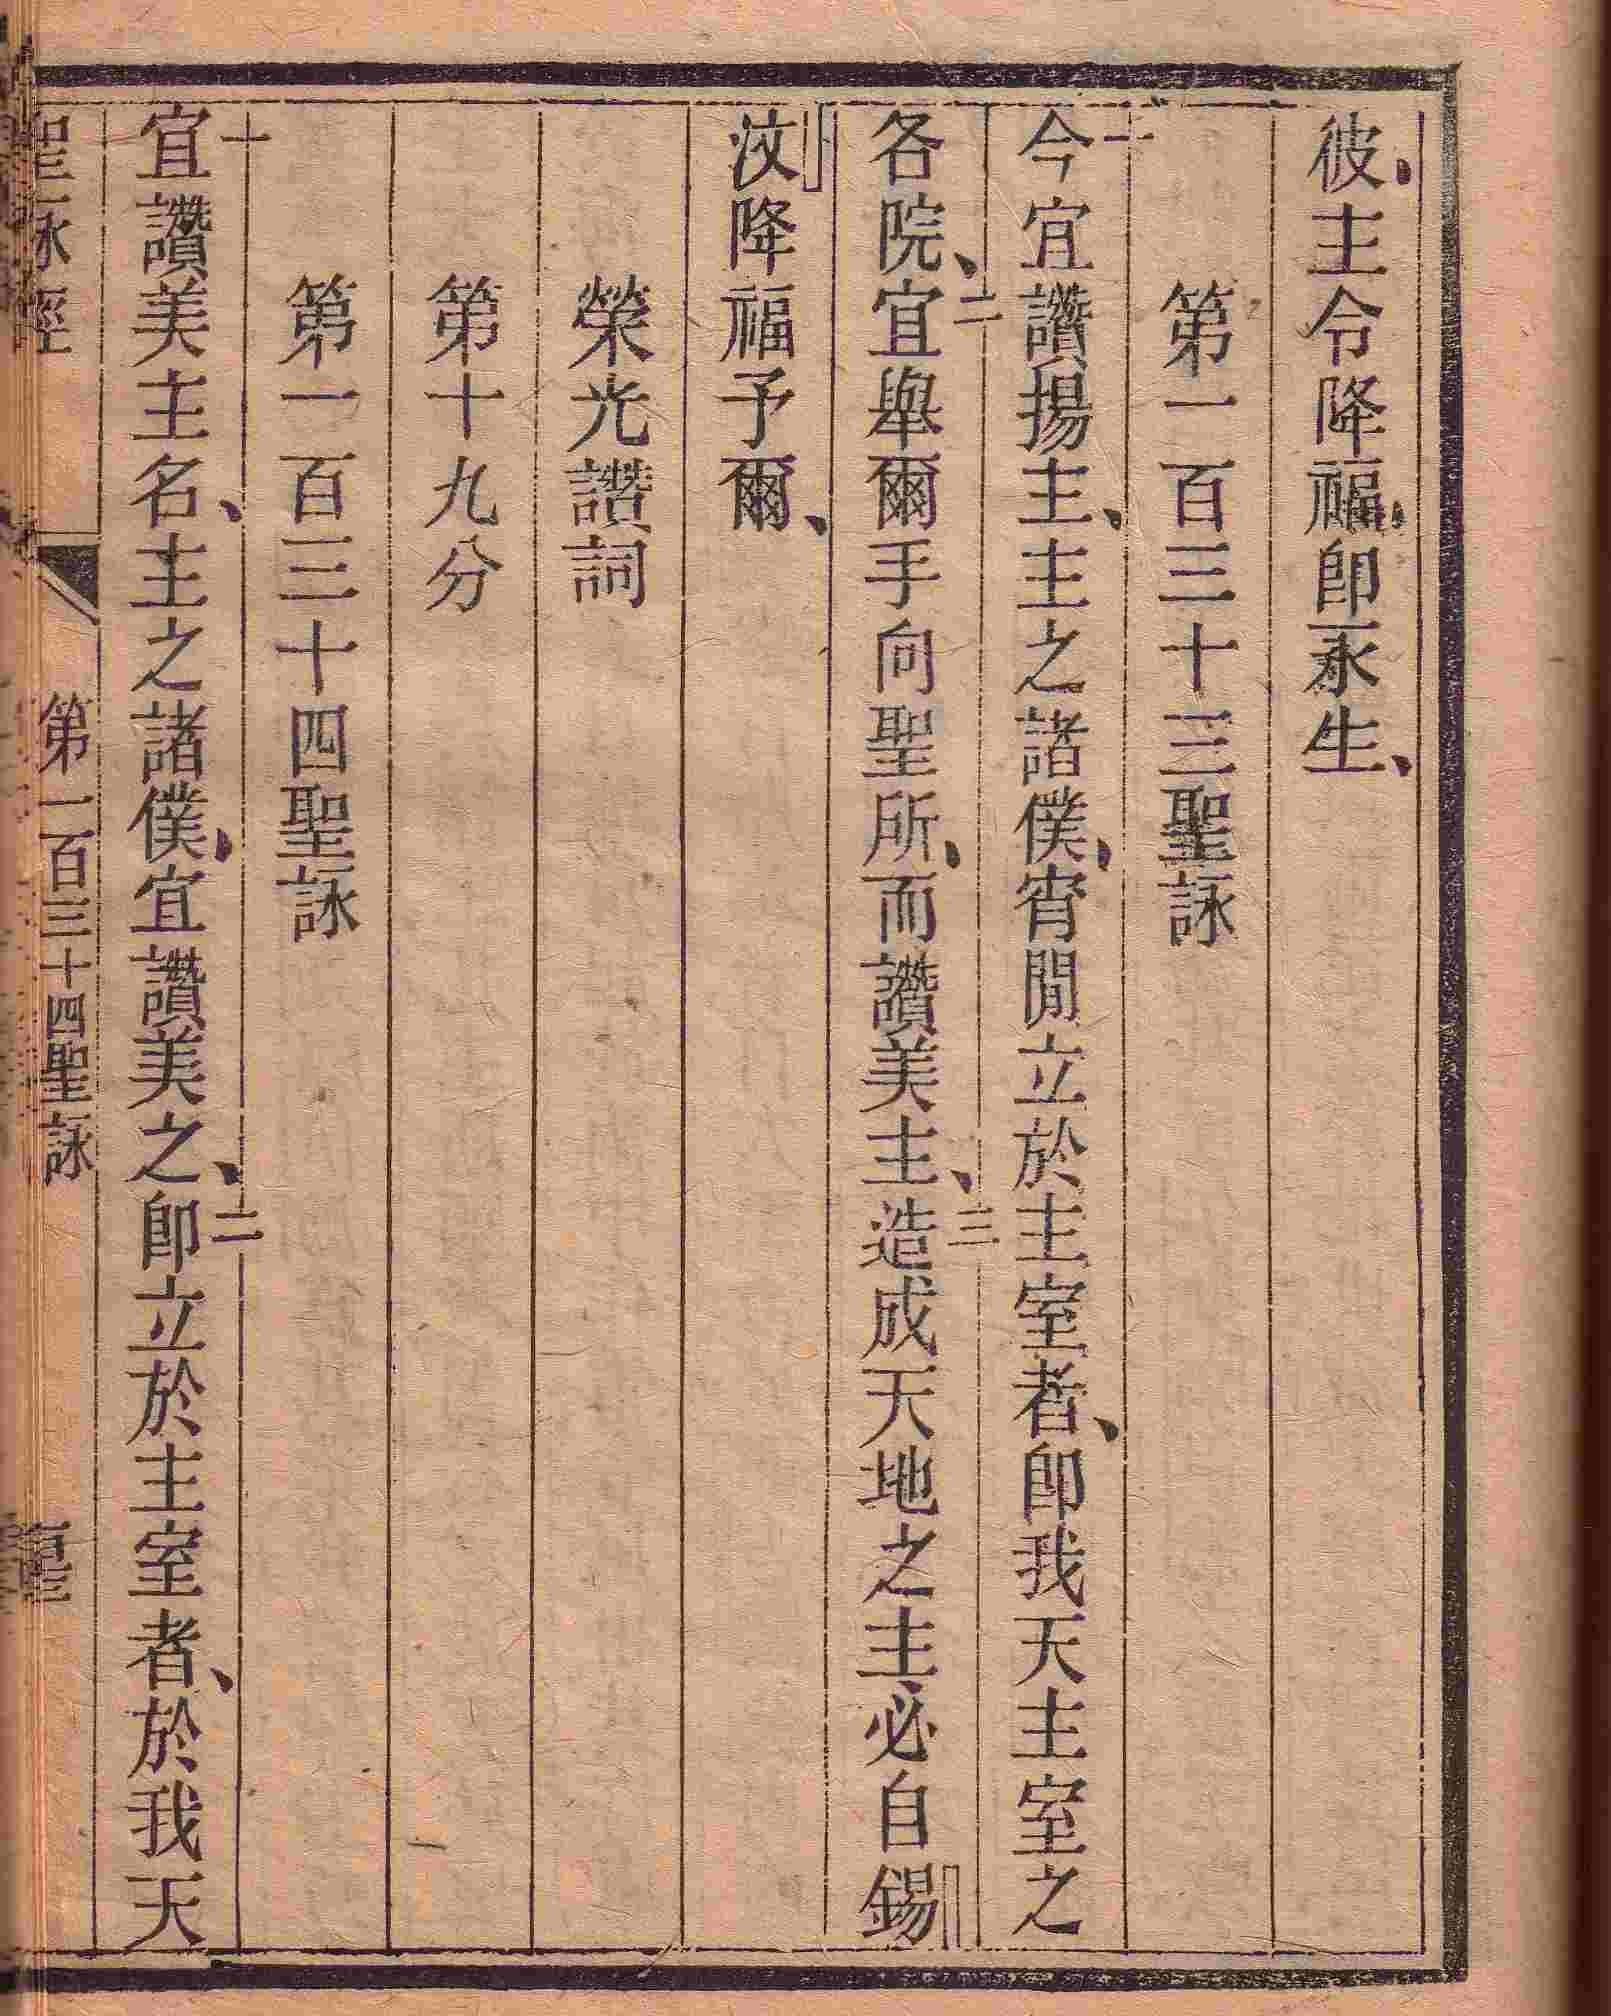 彼、主令降福、即永生、
第一百三十三聖詠
一今宜讚揚主、主之諸僕、宵間立於主室者、即我天主室之
各院、二宜舉爾手向聖所、而讚美主、三造成天地之主必自錫
汶降福予爾、
榮光讚詞
第十九分
第一百三十四聖詠
一宜讚美主名、主之諸僕、宜讚美之、二即立於主室者、於我天
聖詠經 第一百三十四聖詠